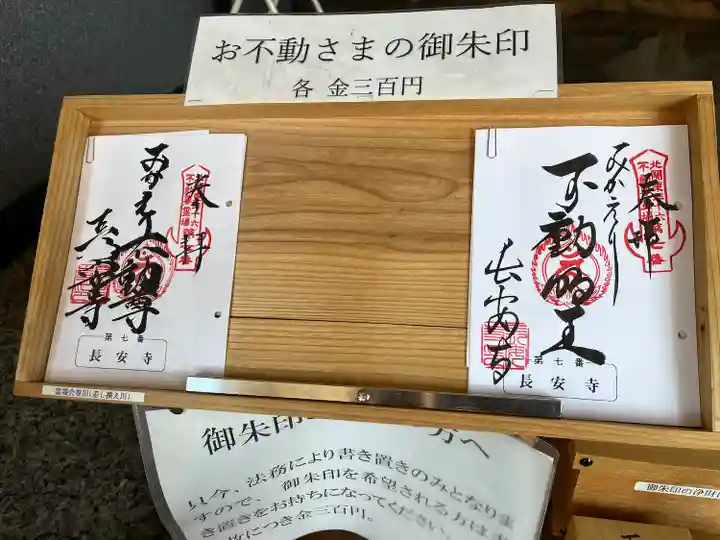 お不動さまの御朱印
各 金三百円
奉拝
長安寺
第七番
長安寺
霊場会専用(差し換え用)
奉拝
みかえり
不動明王
長安寺
第七番
長安寺
御朱印
方へ
只今、法務により書き置きのみとなりま
すので、御朱印を希望される方は
き置きをお持ちになってください。
につき金三百円。
御朱印の浄財